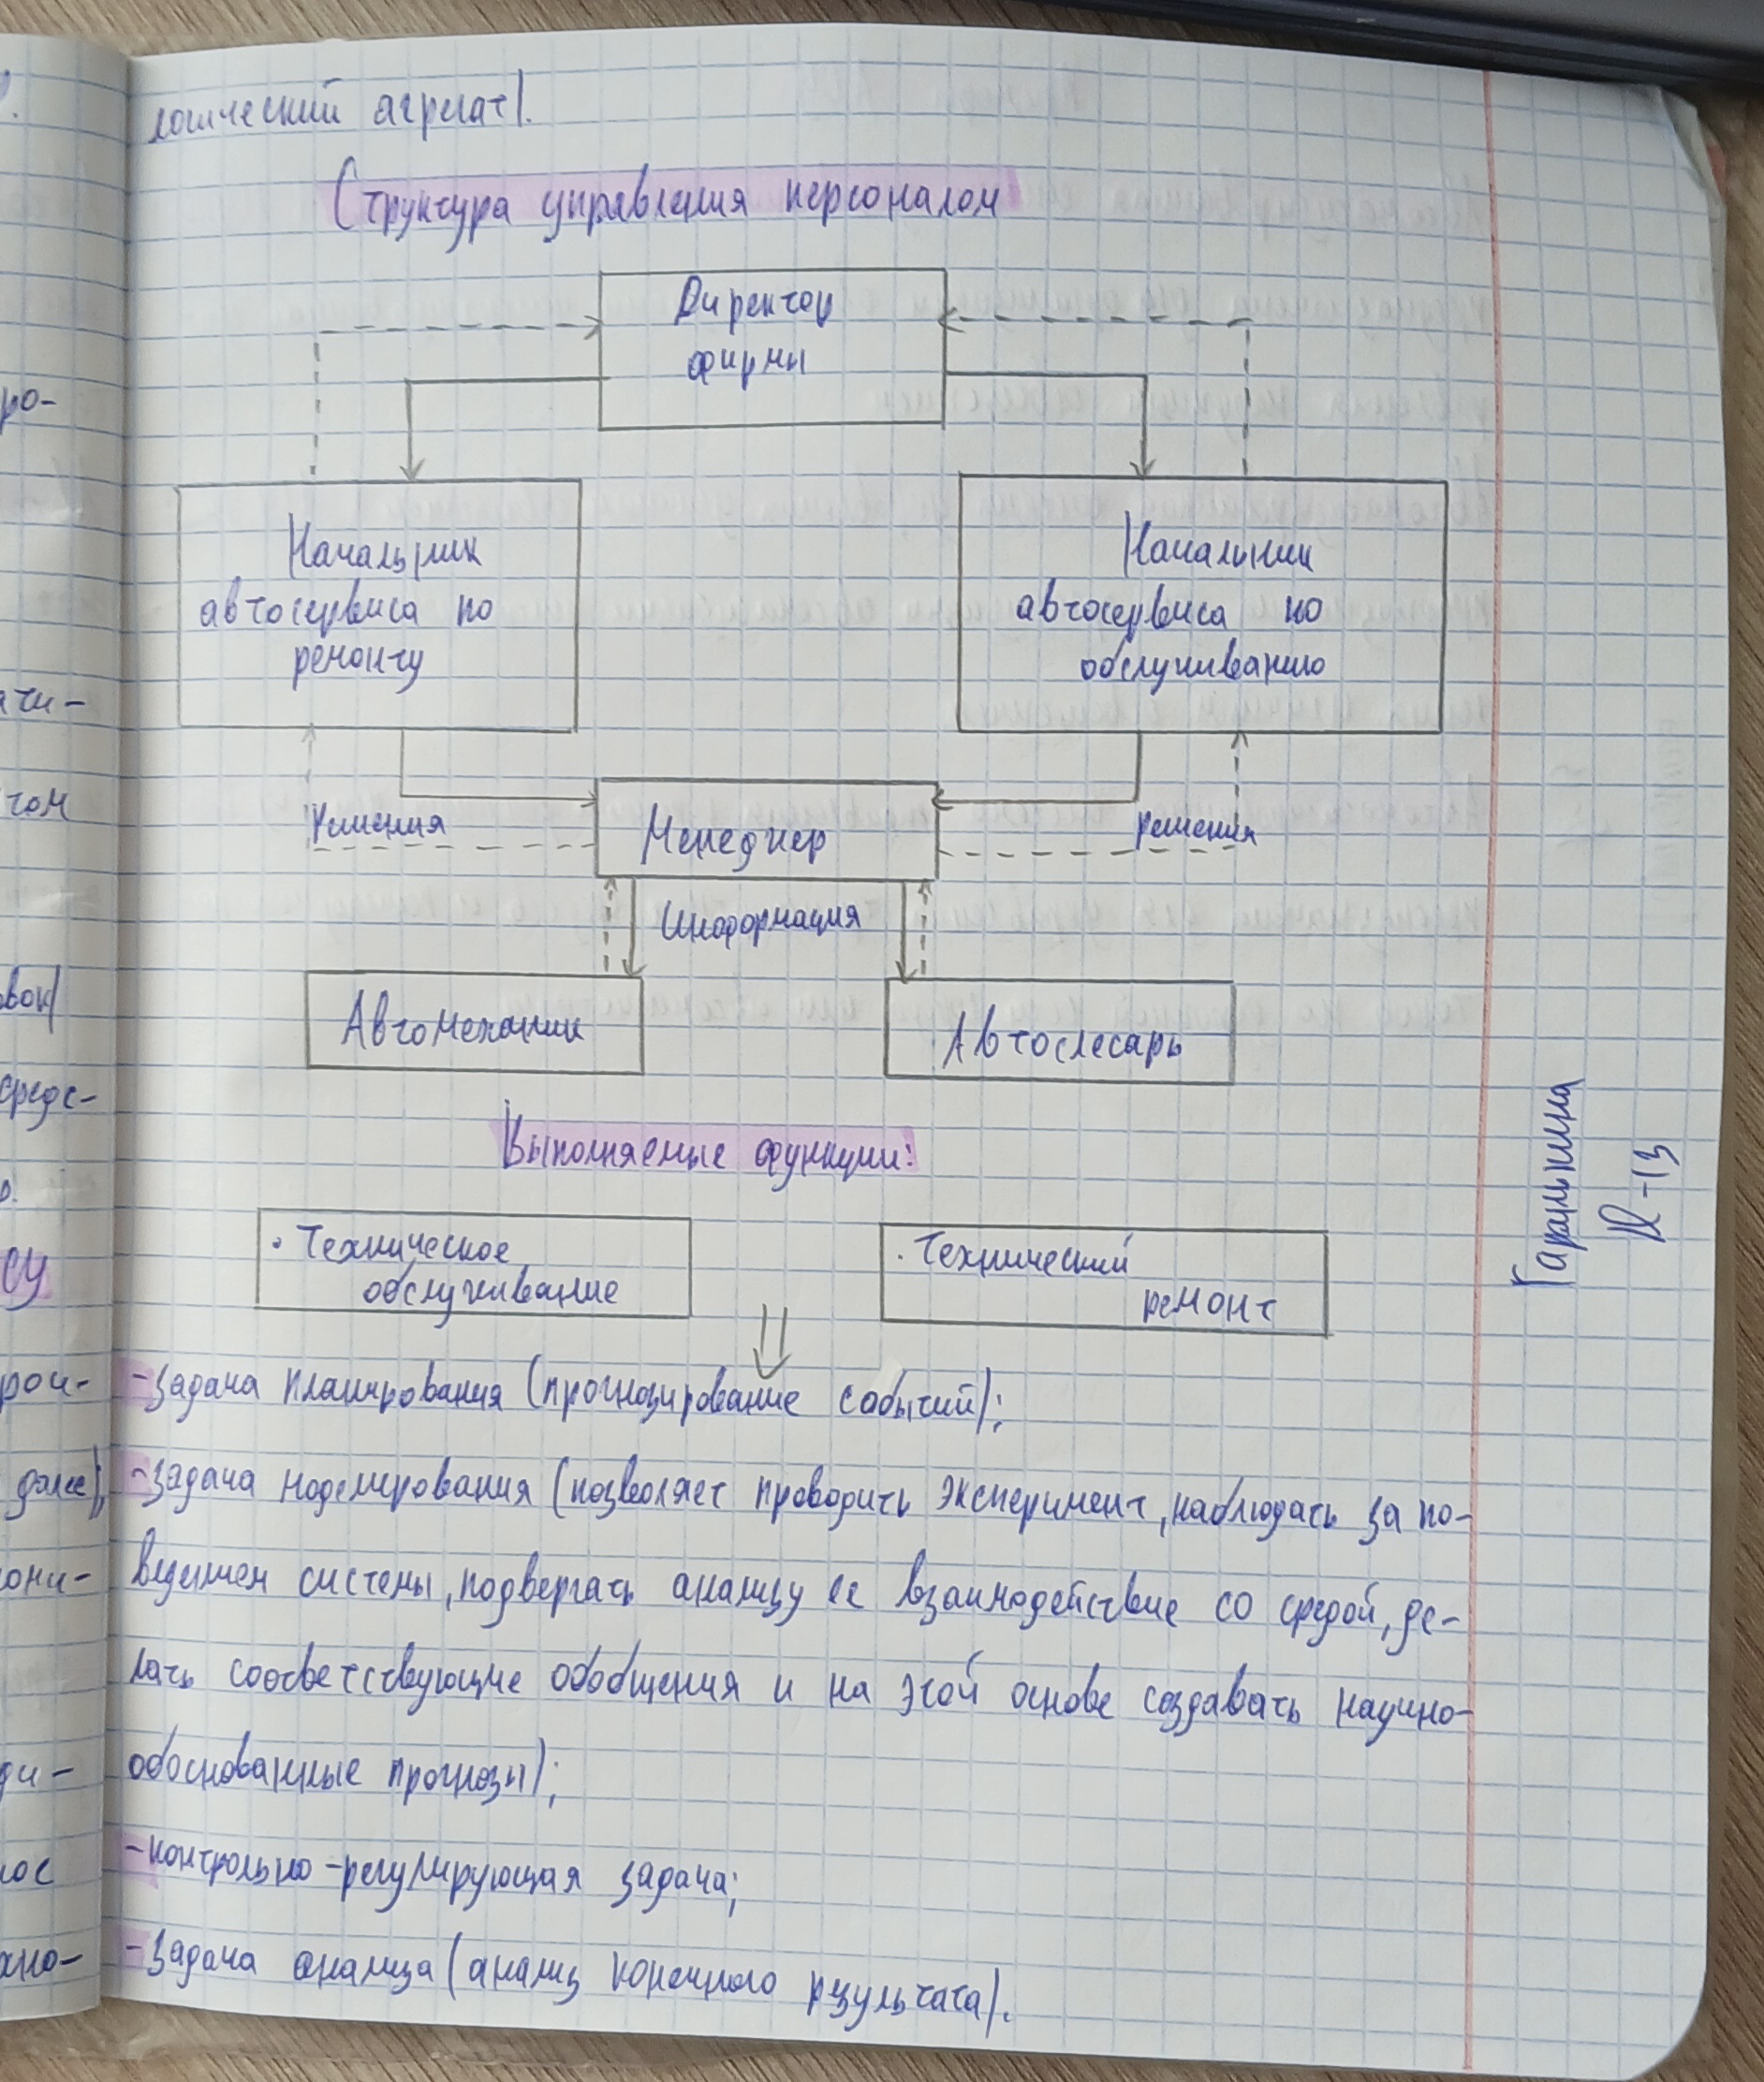 логический агрегат).
Структура управления персоналом
Директор
фирмы
Начальник
автосервиса по
ремонту
Начальник
автосервиса по
обслуживанию
Решения
Менеджер
решения
Информация
Автомеханик
Автослесарь
Выполняемые функции:
• Техническое
обслуживание
· Технический
ремонт
-задача планирования (прогнозирование событий);
-задача моделирования (позволяет проводить эксперимент, наблюдать за по-
ведением системы, подвергать анализу ее взаимодействие со средой, де-
лать соответствующие обобщения и на этой основе создавать научно-
обоснованные прогнозы);
-контрольно-регулирующая задача;
-задача анализа (анализ конечного результата).
ро-
ачи-
том
вок)
средс-
су
рои-
далее),
они-
ди-
ано-